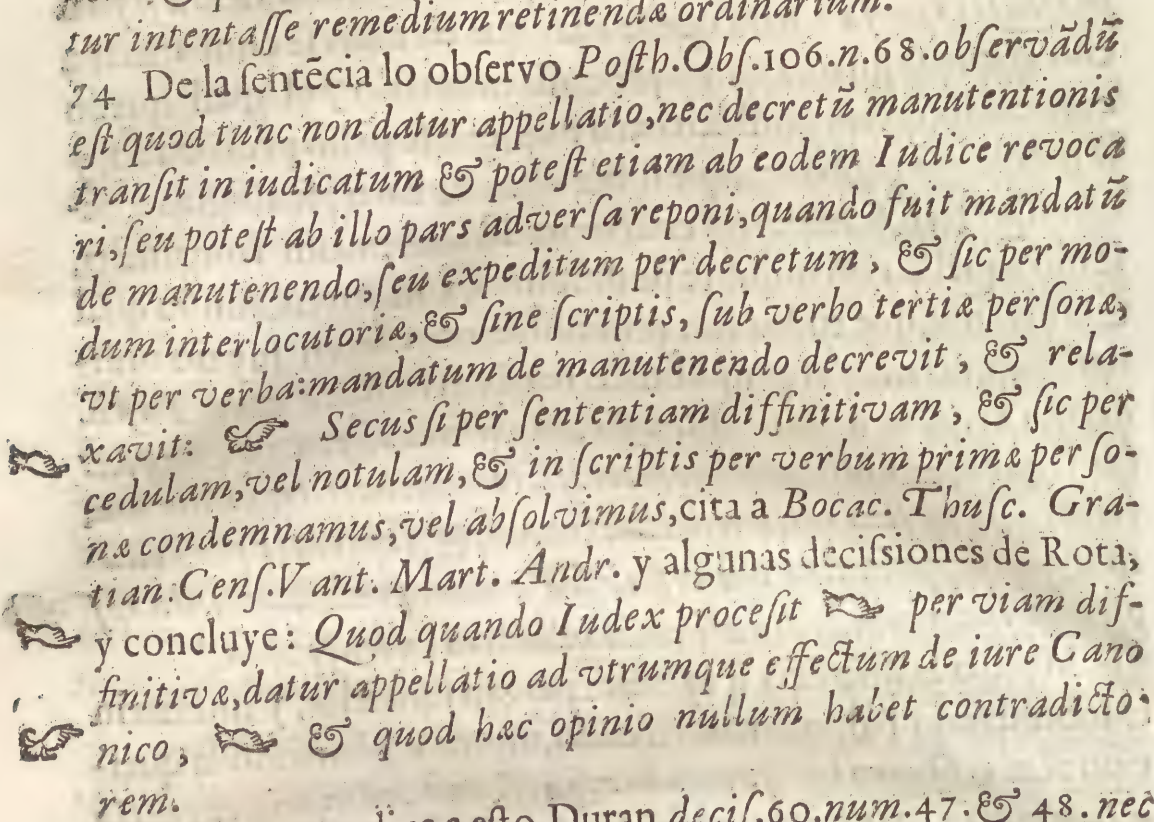 tur intentasse remedium retinendæ ordinarium.
74 De la sentẽcia lo observo Posth.Obs.106.n.68.observãdũ
est quod tunc non datur appellatio,nec decretũ manutentionis
transit in iudicatum & potest etiam ab eodem Iudice revoca
ri,seu potest ab illo pars adversa reponi,quando fuit mandatũ
de manutenendo,seu expeditum per decretum, & sic per mo-
dum interlocutoriæ,& sine scriptis, sub verbo tertiæ personæ,
vt per verba:mandatum de manutenendo decrevit, & rela-
xavit: ☞ Secus si per sententiam diffinitivam, & sic per
cedulam,vel notulam,& in scriptis per verbum primæ perso-
næ condemnamus,vel absolvimus,cita a Bocac. Thusc. Gra-
tian.Cens.Vant. Mart. Andr. y algunas decissiones de Rota,
y concluye: Quod quando Iudex procesit ☞ per viam dif-
finitivæ,datur appellatio ad vtrumque effectum de iure Cano
nico, ☞ & quod hæc opinio nullum habet contradicto-
rem.
esto Duran decis.60.num.47.& 48. nec